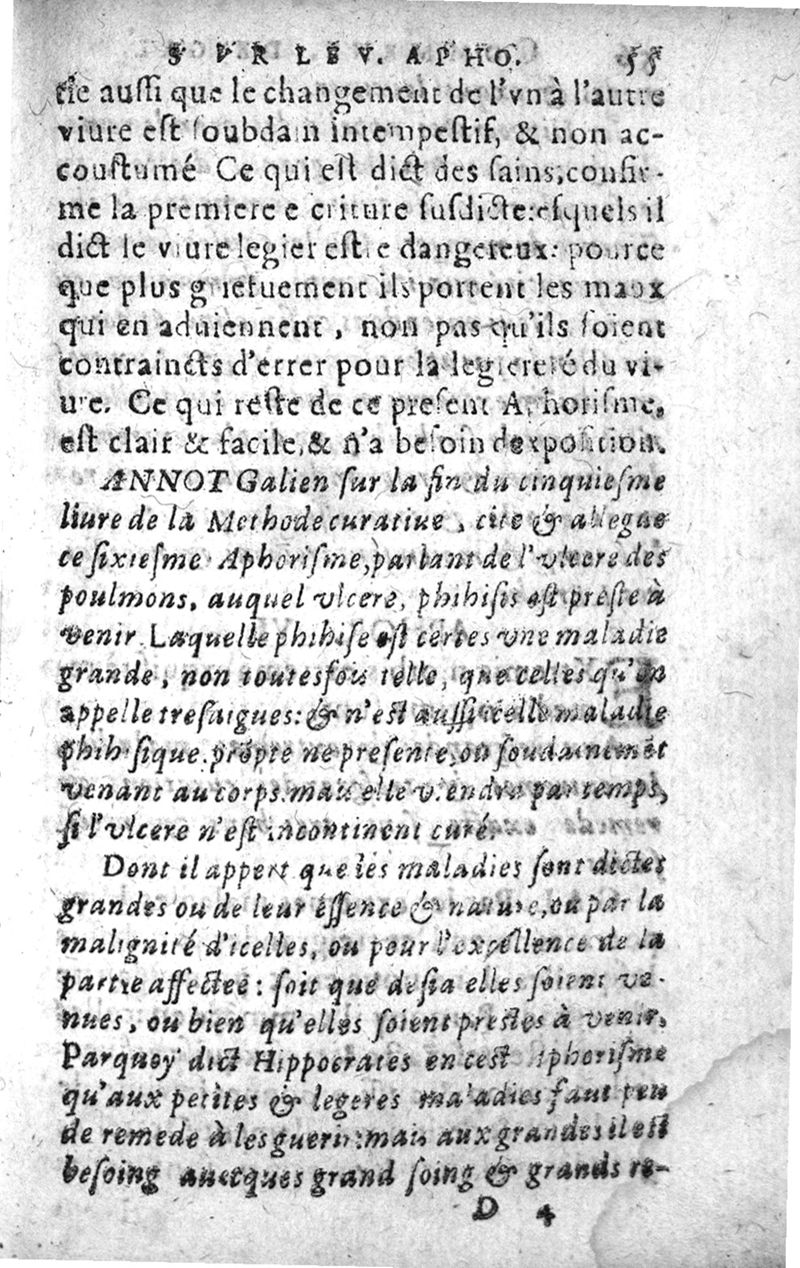 SVR LE V. APHO. 55
tie aussi que le changement de l'vn à l'autre
viure est soubdain intempestif, & non ac-
coustumé Ce qui est dict des sains, confir-
me la premiere escriture susdicte: esquels il
dict le viure legier estre dangereux: pource
que plus griefuement ils portent les maux
qui en aduiennent, non pas qu'ils soient
contraincts d'errer pour la legiereté du vi-
ure. Ce qui reste de ce present Aphorisme,
est clair & facile, & n'a besoin d'exposition.
ANNOT Galien sur la fin du cinquiesme
liure de la Methode curatiue, cite & allegue
ce sixiesme Aphorisme, parlant de l'vlcere des
poulmons, auquel vlcere, phihisis est preste à
venir. Laquelle phihise est certes vne maladie
grande, non toutesfois telle, que celles qu'on
appelle tresaigues: & n'est aussi icelle maladie
phihisique. propte ne presente, ou soudainemēt
venant au corps. mais elle viendra par temps,
si l'vlcere n'est incontinent curé.
Dont il appert que les maladies sont dictes
grandes ou de leur essence & nature, ou par la
malignité d'icelles, ou pour l'excellence de la
partie affectee: soit que desia elles soient ve-
nues, ou bien qu'elles soient prestes à venir,
Parquoy dict Hippocrates en cest Aphorisme
qu'aux petites & legeres maladies faut peu
de remede à les guerir: mais aux grandes il est
besoing auecques grand soing & grands re-
D 4